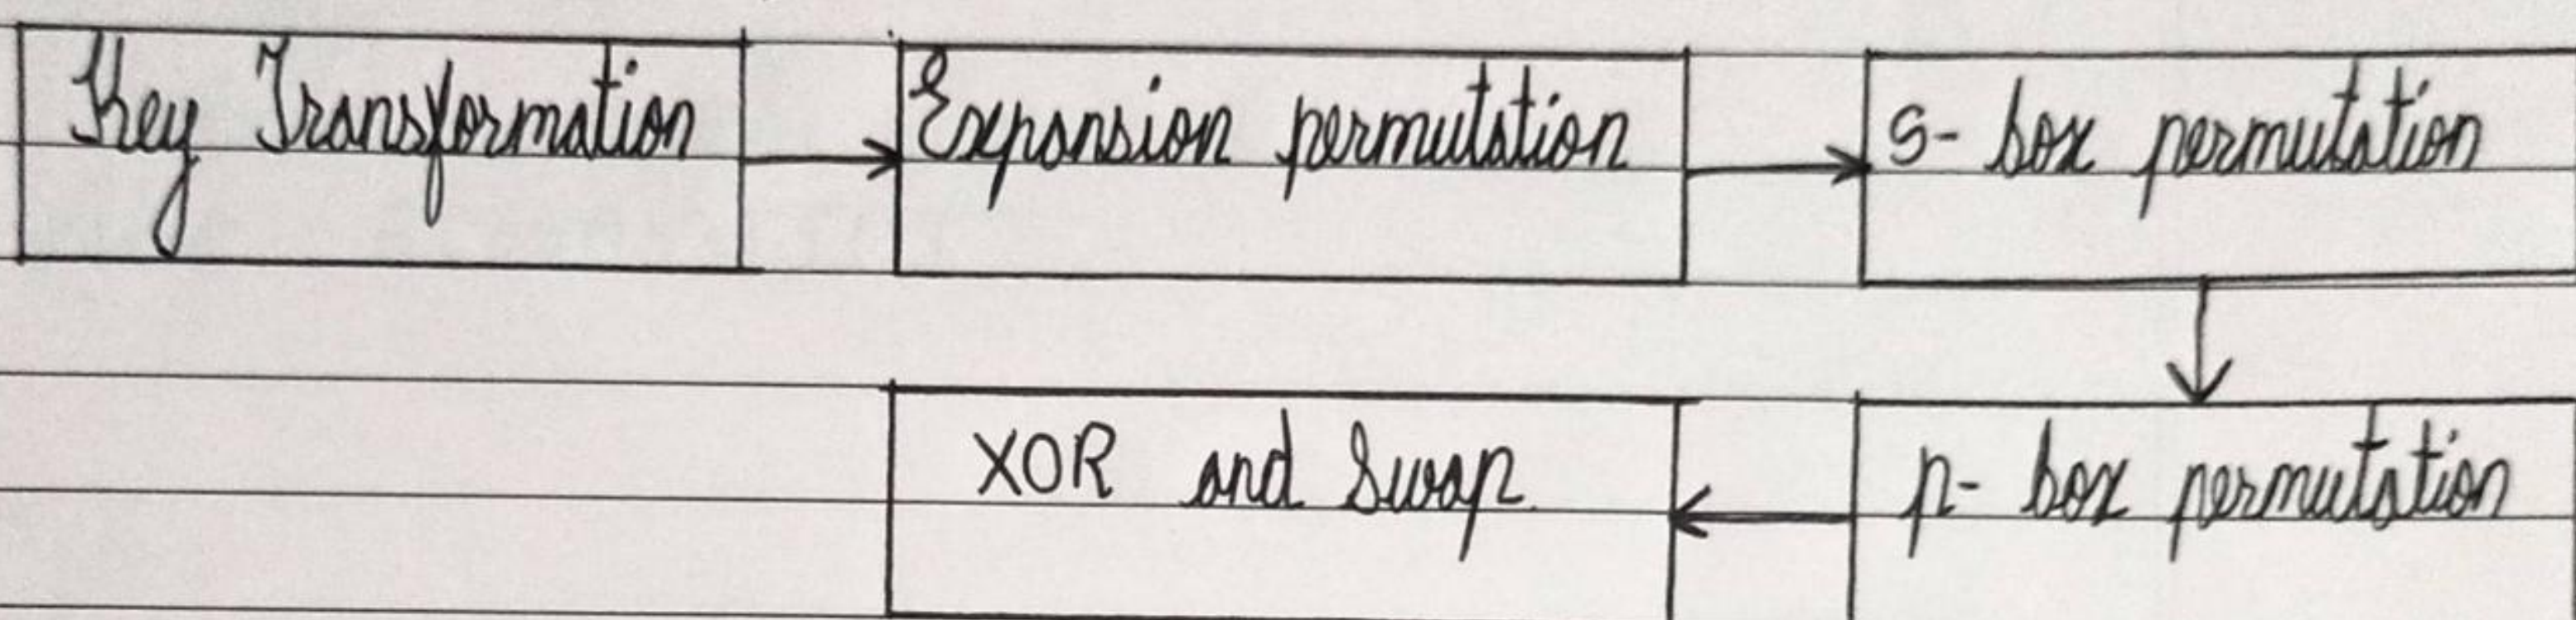 Key Transformation
Expansion permutation
S- box permutation
XOR and Swap
p- box permutation